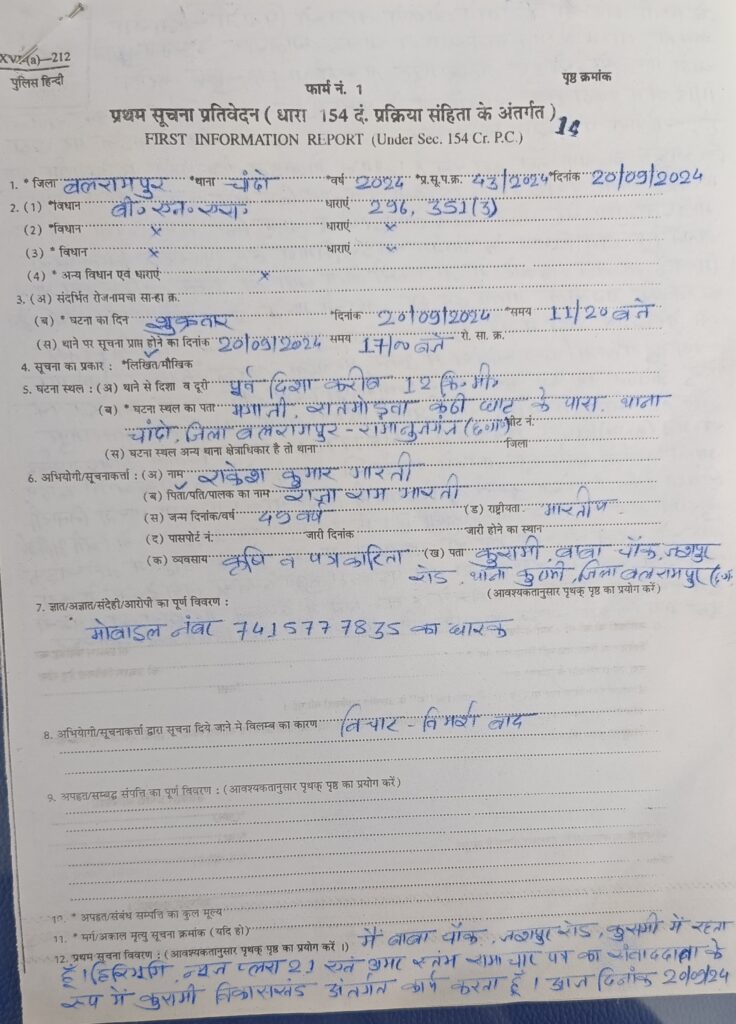 XVI-(a)—212
पुलिस हिन्दी
फार्म नं. 1
पृष्ठ क्रमांक
प्रथम सूचना प्रतिवेदन ( धारा 154 दं. प्रक्रिया संहिता के अंतर्गत )
FIRST INFORMATION REPORT (Under Sec. 154 Cr. P.C.)
1. * जिला बलरामपुर *थाना चांदो *वर्ष 2024 *प्र.सू.प.क्र. 43/2024 *दिनांक 20/09/2024
2. (1) *विधान बी. एन. एस. धाराएं 296, 351(3)
(2) *विधान x धाराएं x
(3) * विधान x धाराएं x
(4) * अन्य विधान एवं धाराएं x
3. (अ) संदर्भित रोजनामचा सान्हा क्र.
(ब) * घटना का दिन शुक्रवार *दिनांक 20/09/2024 *समय 11/20 बजे
(स) थाने पर सूचना प्राप्त होने का दिनांक 20/09/2024 समय 17/00 बजे रो. सा. क्र.
4. सूचना का प्रकार : *लिखित/मौखिक
5. घटना स्थल : (अ) थाने से दिशा व दूरी पूर्व दिशा करीब 12 कि. मी.
(ब) * घटना स्थल का पता कंठी घाट के पास थाना
चांदो, जिला बलरामपुर - रामानुजगंज (छ०ग०) बीट नं.
(स) घटना स्थल अन्य थाना क्षेत्राधिकार है तो थाना जिला
6. अभियोगी/सूचनाकर्त्ता : (अ) नाम राकेश कुमार भारती
(ब) पिता/पति/पालक का नाम राजा राम भारती
(स) जन्म दिनांक/वर्ष 49 वर्ष (ड) राष्ट्रीयता भारतीय
(द) पासपोर्ट नं: जारी दिनांक जारी होने का स्थान
(क) व्यवसाय कृषि व पत्रकारिता (ख) पता कुसमी, बाबा चौक, जशपुर
रोड, थाना कुसमी, जिला बलरामपुर (छ.ग.
(आवश्यकतानुसार पृथक् पृष्ठ का प्रयोग करें)
7. ज्ञात/अज्ञात/संदेही/आरोपी का पूर्ण विवरण :
मोबाइल नंबर 7415777835 का धारक
8. अभियोगी/सूचनाकर्त्ता द्वारा सूचना दिये जाने मे विलम्ब का कारण विचार - विमर्श बाद
9. अपहृत/सम्बद्ध संपत्ति का पूर्ण विवरण : (आवश्यकतानुसार पृथक् पृष्ठ का प्रयोग करें)
10. * अपहृत/संबंध सम्पत्ति का कुल मूल्य
11. * मर्ग/अकाल मृत्यु सूचना क्रमांक (यदि हो)
12. प्रथम सूचना विवरण : (आवश्यकतानुसार पृथक् पृष्ठ का प्रयोग करें ।) मैं बाबा चौक, जशपुर रोड, कुसमी में रहता
हूँ। हरिभूमि, न्यूज प्लस 21 एवं अमर स्तंभ समाचार पत्र का संवाददाता के
रूप में कुसमी विकासखंड अंतर्गत कार्य करता हूँ। आज दिनांक 20/09/24